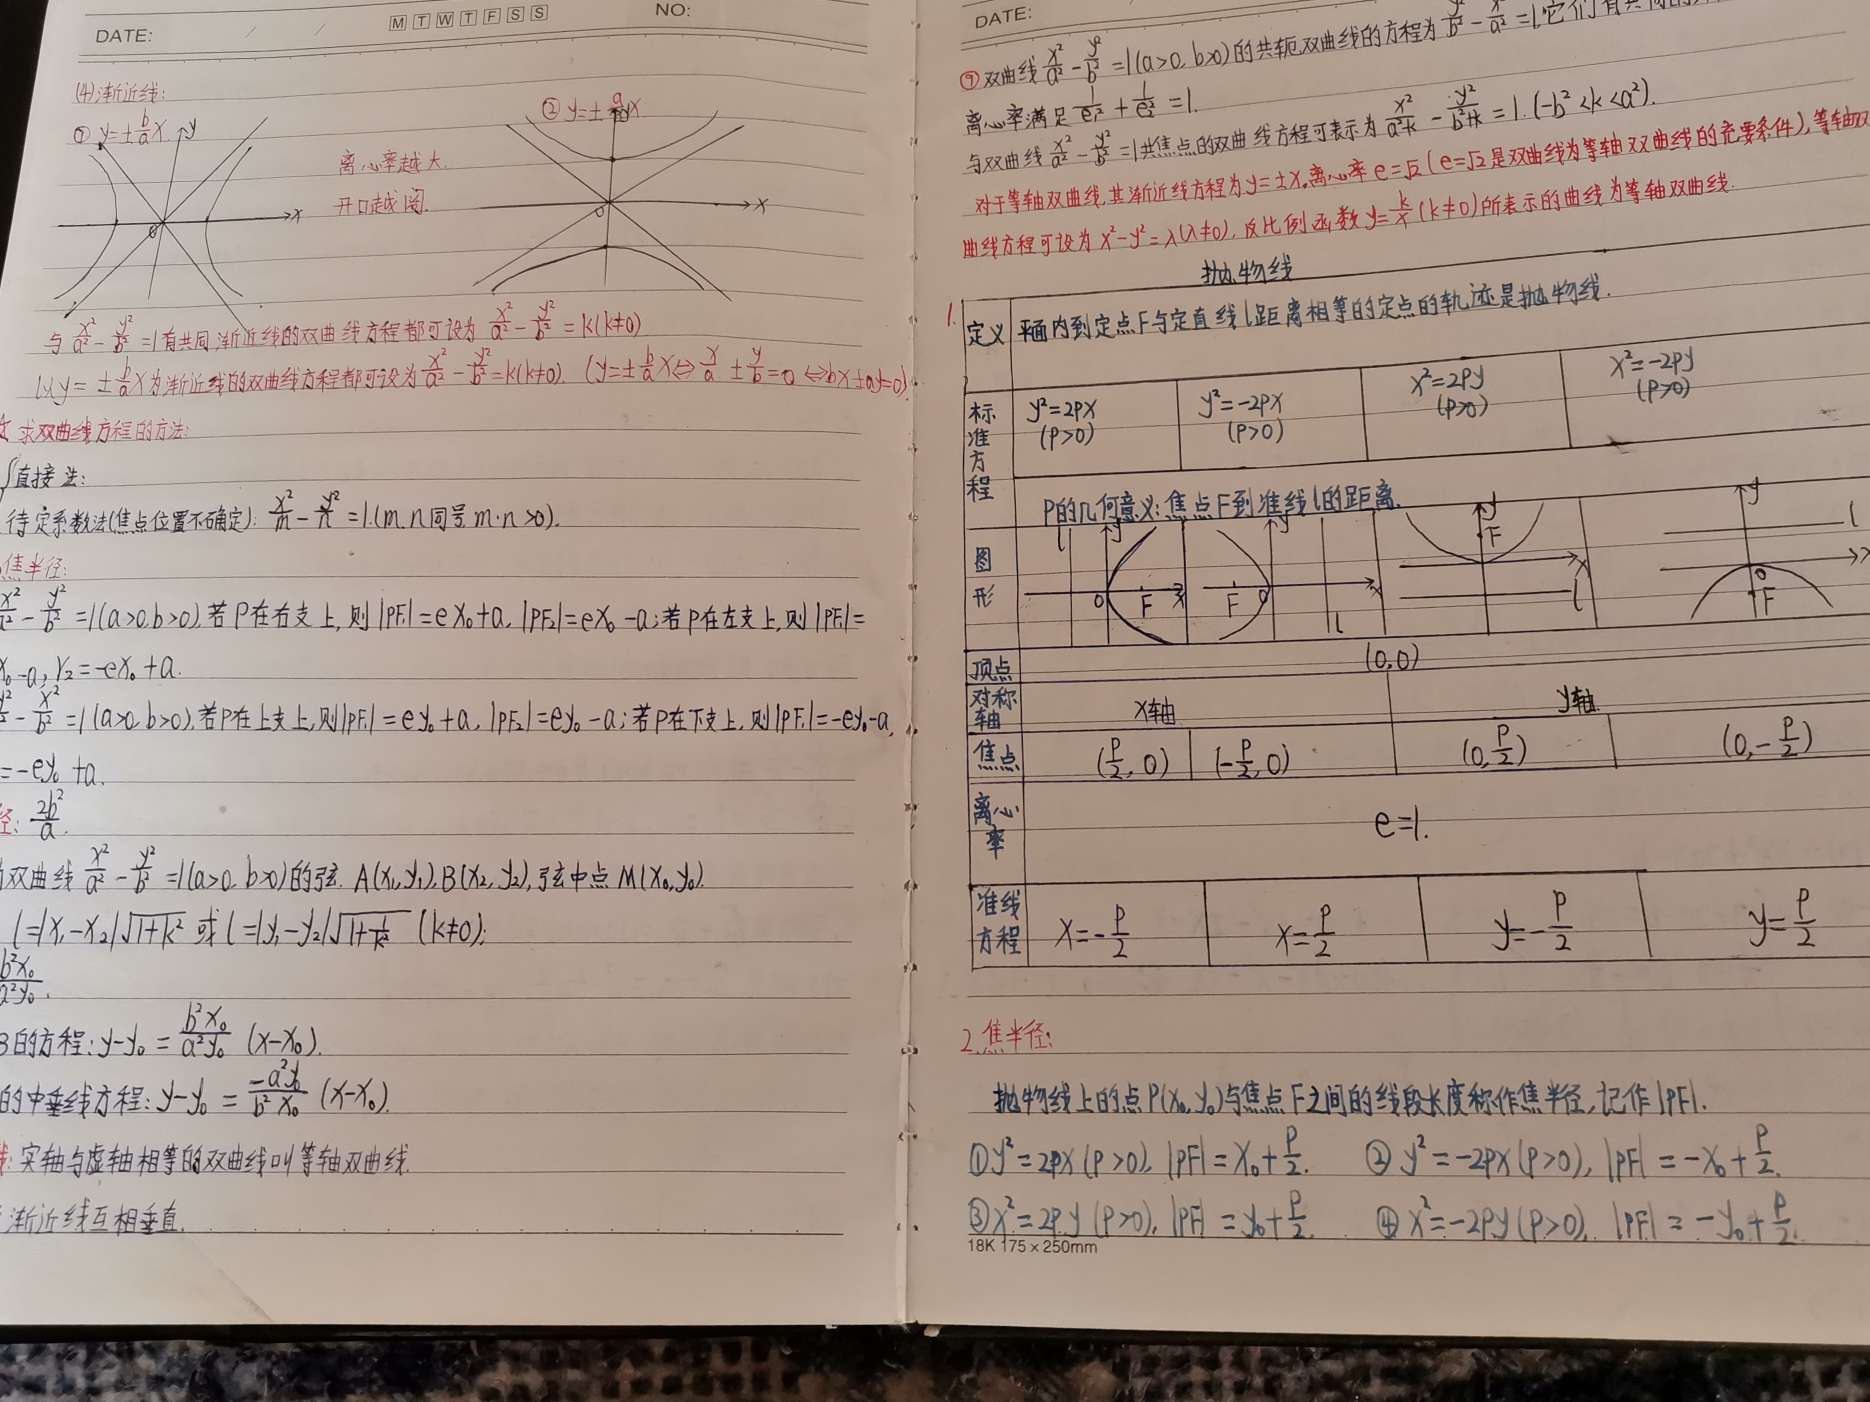 DATE: / / M T W T F S S NO:
(4)渐近线:
① y=±b/a x
y
x
0
离心率越大.
开口越阔.
② y=±a/b x
y
x
0
与 x²/a² - y²/b² =1有共同渐近线的双曲线方程都可设为 x²/a² - y²/b² = k(k≠0)
以y=±b/a x为渐近线的双曲线方程都可设为 x²/a² - y²/b² = k(k≠0). (y=±b/a x⇔x/a ± y/b=0 ⇔bx±ay=0).
求双曲线方程的方法:
直接法:
待定系数法(焦点位置不确定): x²/m - y²/n =1.(m.n同号 m·n>0).
焦半径:
x²/a² - y²/b² =1(a>0.b>0),若P在右支上,则|PF₁|=ex₀+a,|PF₂|=ex₀-a;若P在左支上,则|PF₁|=
x₀-a, r₂=-ex₀+a.
- x²/b² =1(a>0.b>0),若P在上支上,则|PF₁|=ey₀+a,|PF₂|=ey₀-a;若P在下支上,则|PF₁|=-ey₀-a,
=-ey₀+a.
径: 2b²/a.
双曲线 x²/a² - y²/b² =1(a>0.b>0)的弦. A(x₁,y₁).B(x₂,y₂),弦中点M(x₀,y₀).
l=|x₁-x₂|√1+k² 或 l=|y₁-y₂|√1+1/k² (k≠0);
b²x₀/a²y₀.
B的方程:y-y₀ = b²x₀/a²y₀ (x-x₀).
的中垂线方程:y-y₀ = -a²y₀/b²x₀ (x-x₀).
实轴与虚轴相等的双曲线叫等轴双曲线.
渐近线互相垂直.
DATE:
⑨双曲线 x²/a² - y²/b² =1(a>0.b>0)的共轭双曲线的方程为 y²/b² - x²/a² =1.它们有共同的
离心率满足 1/e₁² + 1/e₂² =1.
与双曲线 x²/a² - y²/b² =1共焦点的双曲线方程可表示为 x²/a²-k - y²/b²+k =1.(-b²<k<a²).
对于等轴双曲线,其渐近线方程为y=±x,离心率e=√2(e=√2是双曲线为等轴双曲线的充要条件),等轴双
曲线方程可设为x²-y²=λ(λ≠0),反比例函数y=k/x(k≠0)所表示的曲线为等轴双曲线.
抛物线
1.
定义 平面内到定点F与定直线l距离相等的定点的轨迹是抛物线.
标准方程 y²=2px (p>0) y²=-2px (p>0) x²=2py (p>0) x²=-2py (p>0)
P的几何意义:焦点F到准线l的距离.
图形 l y 0 F x y F 0 l x y F x l y l 0 F x
顶点 (0,0)
对称轴 x轴 y轴
焦点 (p/2,0) (-p/2,0) (0,p/2) (0,-p/2)
离心率 e=1.
准线方程 x=-p/2 x=p/2 y=-p/2 y=p/2
2.焦半径:
抛物线上的点P(x₀,y₀)与焦点F之间的线段长度称作焦半径,记作|PF|.
①y²=2px(p>0),|PF|=x₀+p/2. ②y²=-2px(p>0),|PF|=-x₀+p/2.
③x²=2py(p>0),|PF|=y₀+p/2. ④x²=-2py(p>0),|PF|=-y₀+p/2.
18K 175×250mm